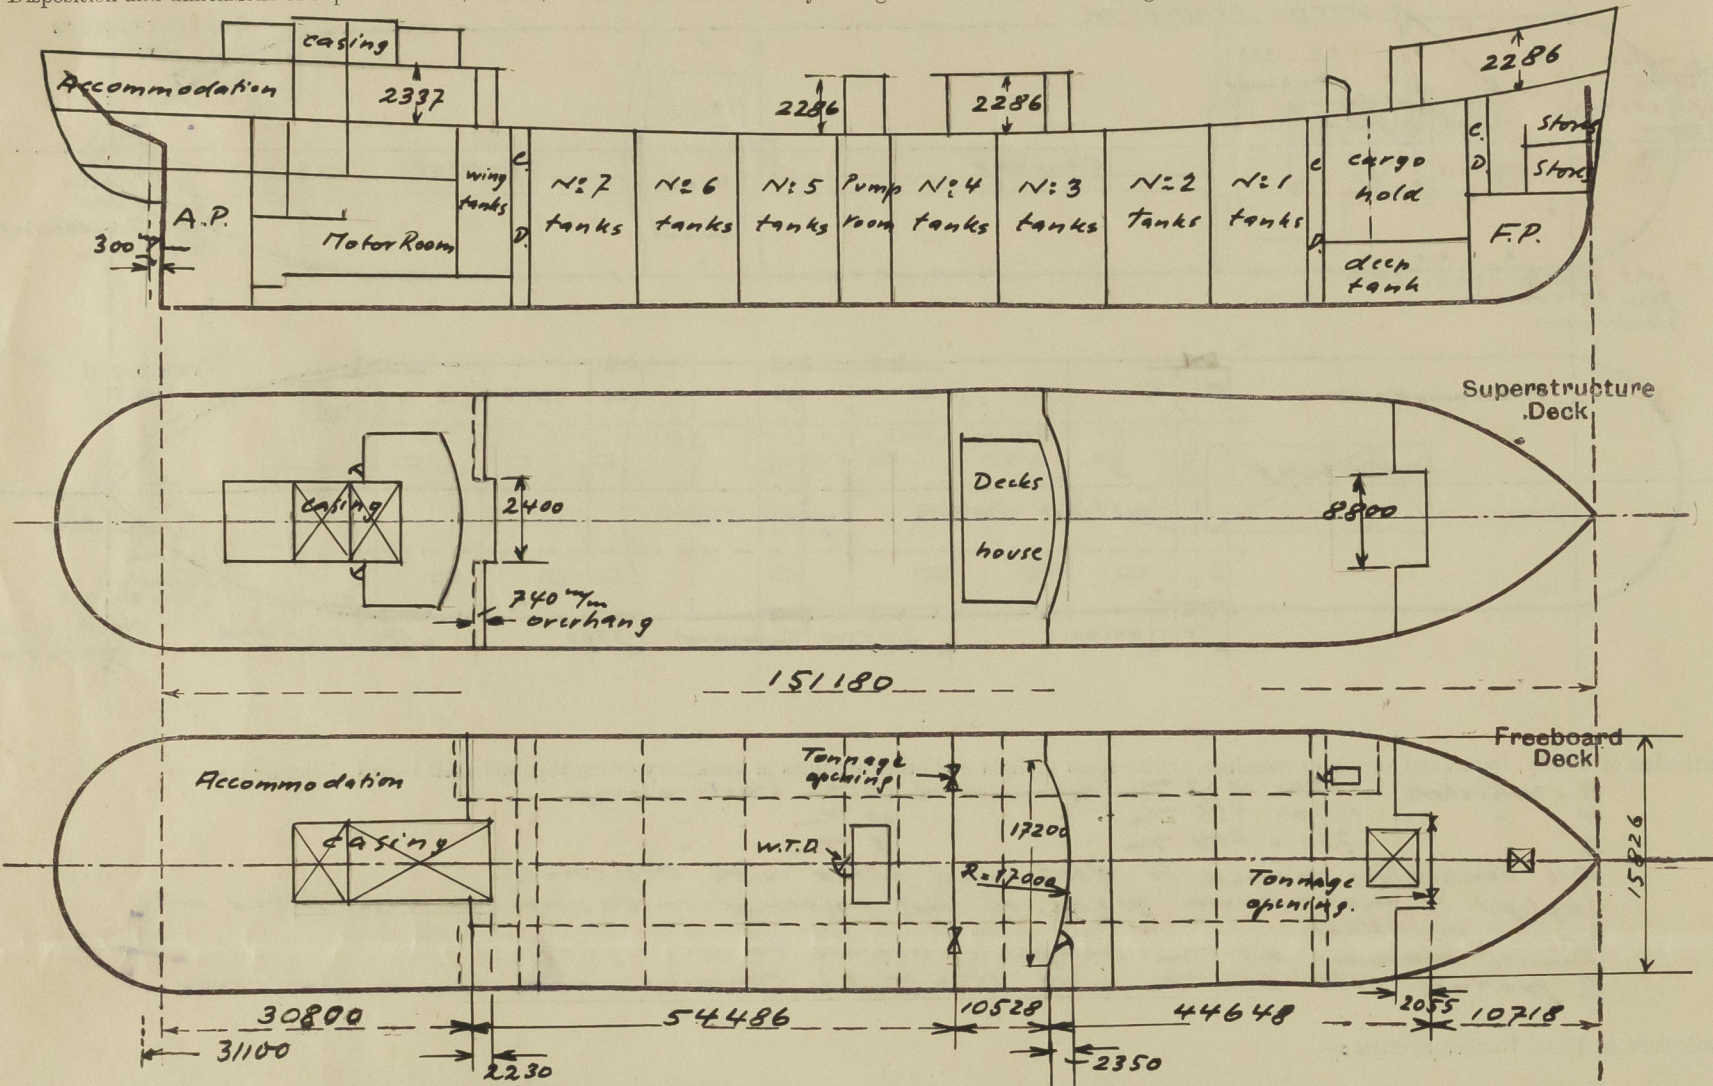 casing
Accommodation
2337
2286
2286
2286
C.
D.
Stores
Stores
wing
tanks
C.
D.
No 7
tanks
No 6
tanks
No 5
tanks
Pump
room
No 4
tanks
No 3
tanks
No 2
Tanks
No 1
tanks
C.
D.
cargo
hold
A.P.
300 m/m
Motor Room
deep
tank
F.P.
Superstructure
Deck
casing
2400
Decks
house
8800
740 m/m
overhang
151180
Freeboard
Deck
Accommodation
Tonnage
opening
casing
W.T.D.
17200
R=17000
Tonnage
opening.
15826
30800
54486
10528
44648
2055
10718
31100
2230
2350